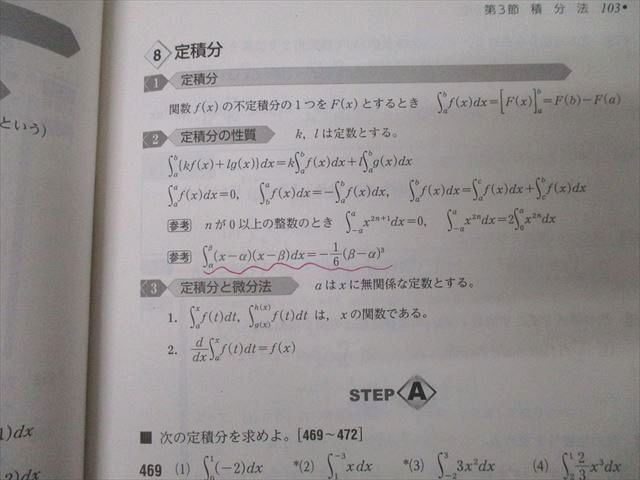 第3節 積分法 103•
8 定積分
1 定積分
関数 f(x) の不定積分の1つを F(x) とするとき ∫_a^b f(x)dx=[F(x)]_a^b=F(b)−F(a)
という)
2 定積分の性質 k, l は定数とする。
∫_a^b {kf(x)+lg(x)}dx=k∫_a^b f(x)dx+l∫_a^b g(x)dx
∫_a^a f(x)dx=0, ∫_b^a f(x)dx=−∫_a^b f(x)dx, ∫_a^b f(x)dx=∫_a^c f(x)dx+∫_c^b f(x)dx
参考 n が 0 以上の整数のとき ∫_{−a}^a x^{2n+1}dx=0, ∫_{−a}^a x^{2n}dx=2∫_0^a x^{2n}dx
参考 ∫_α^β (x−α)(x−β)dx=−1/6(β−α)³
3 定積分と微分法 a は x に無関係な定数とする。
1. ∫_a^x f(t)dt, ∫_{g(x)}^{h(x)} f(t)dt は, x の関数である。
2. d/dx ∫_a^x f(t)dt=f(x)
STEP A
1)dx
■ 次の定積分を求めよ。[469~472]
469 (1) ∫_0^1 (−2)dx *(2) ∫_1^{−3} x dx *(3) ∫_{−2}^3 3x²dx (4) ∫_{−2}^1 2/3 x³dx
2)dx